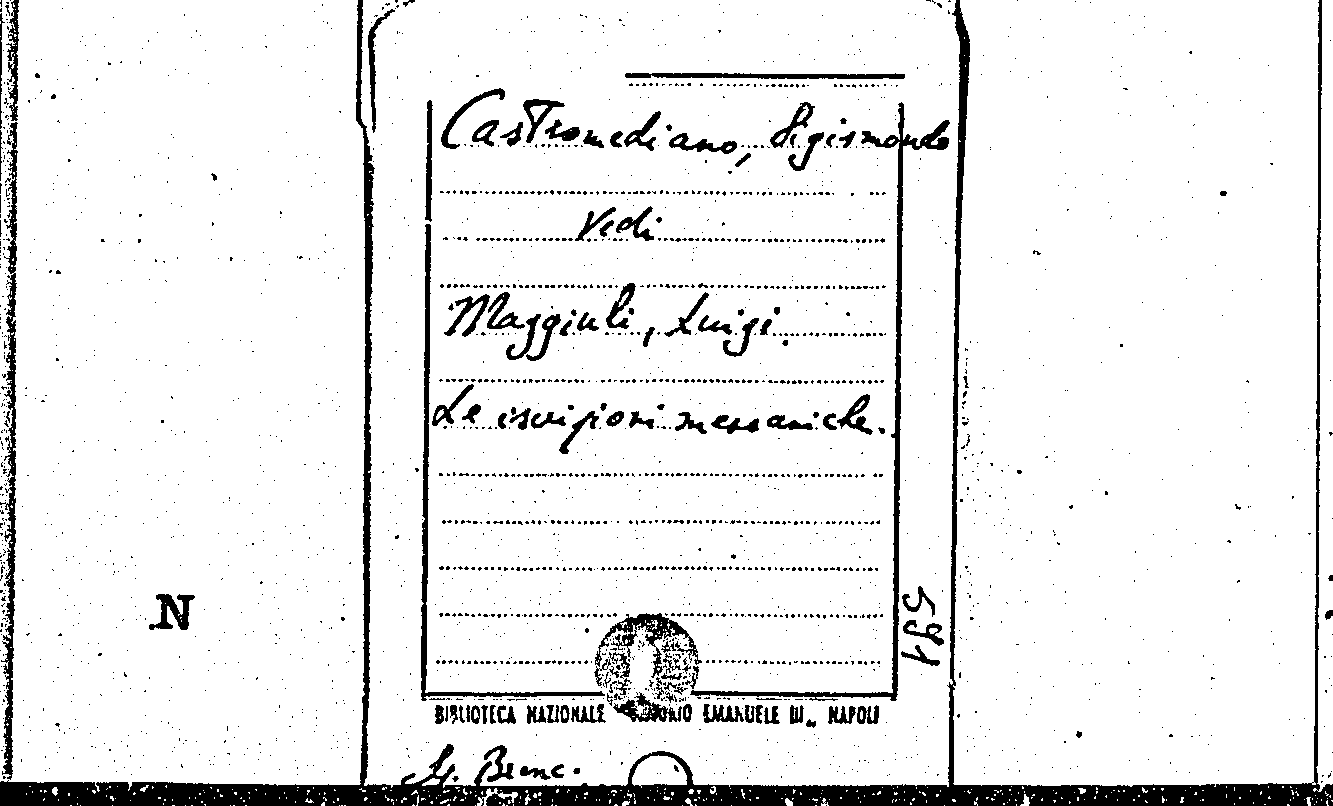 Castromediano, Sigismondo
Vedi
Maggiulli, Luigi.
Le iscrizioni messapiche.
591
N
BIBLIOTECA NAZIONALE EMANUELE III„ NAPOLI